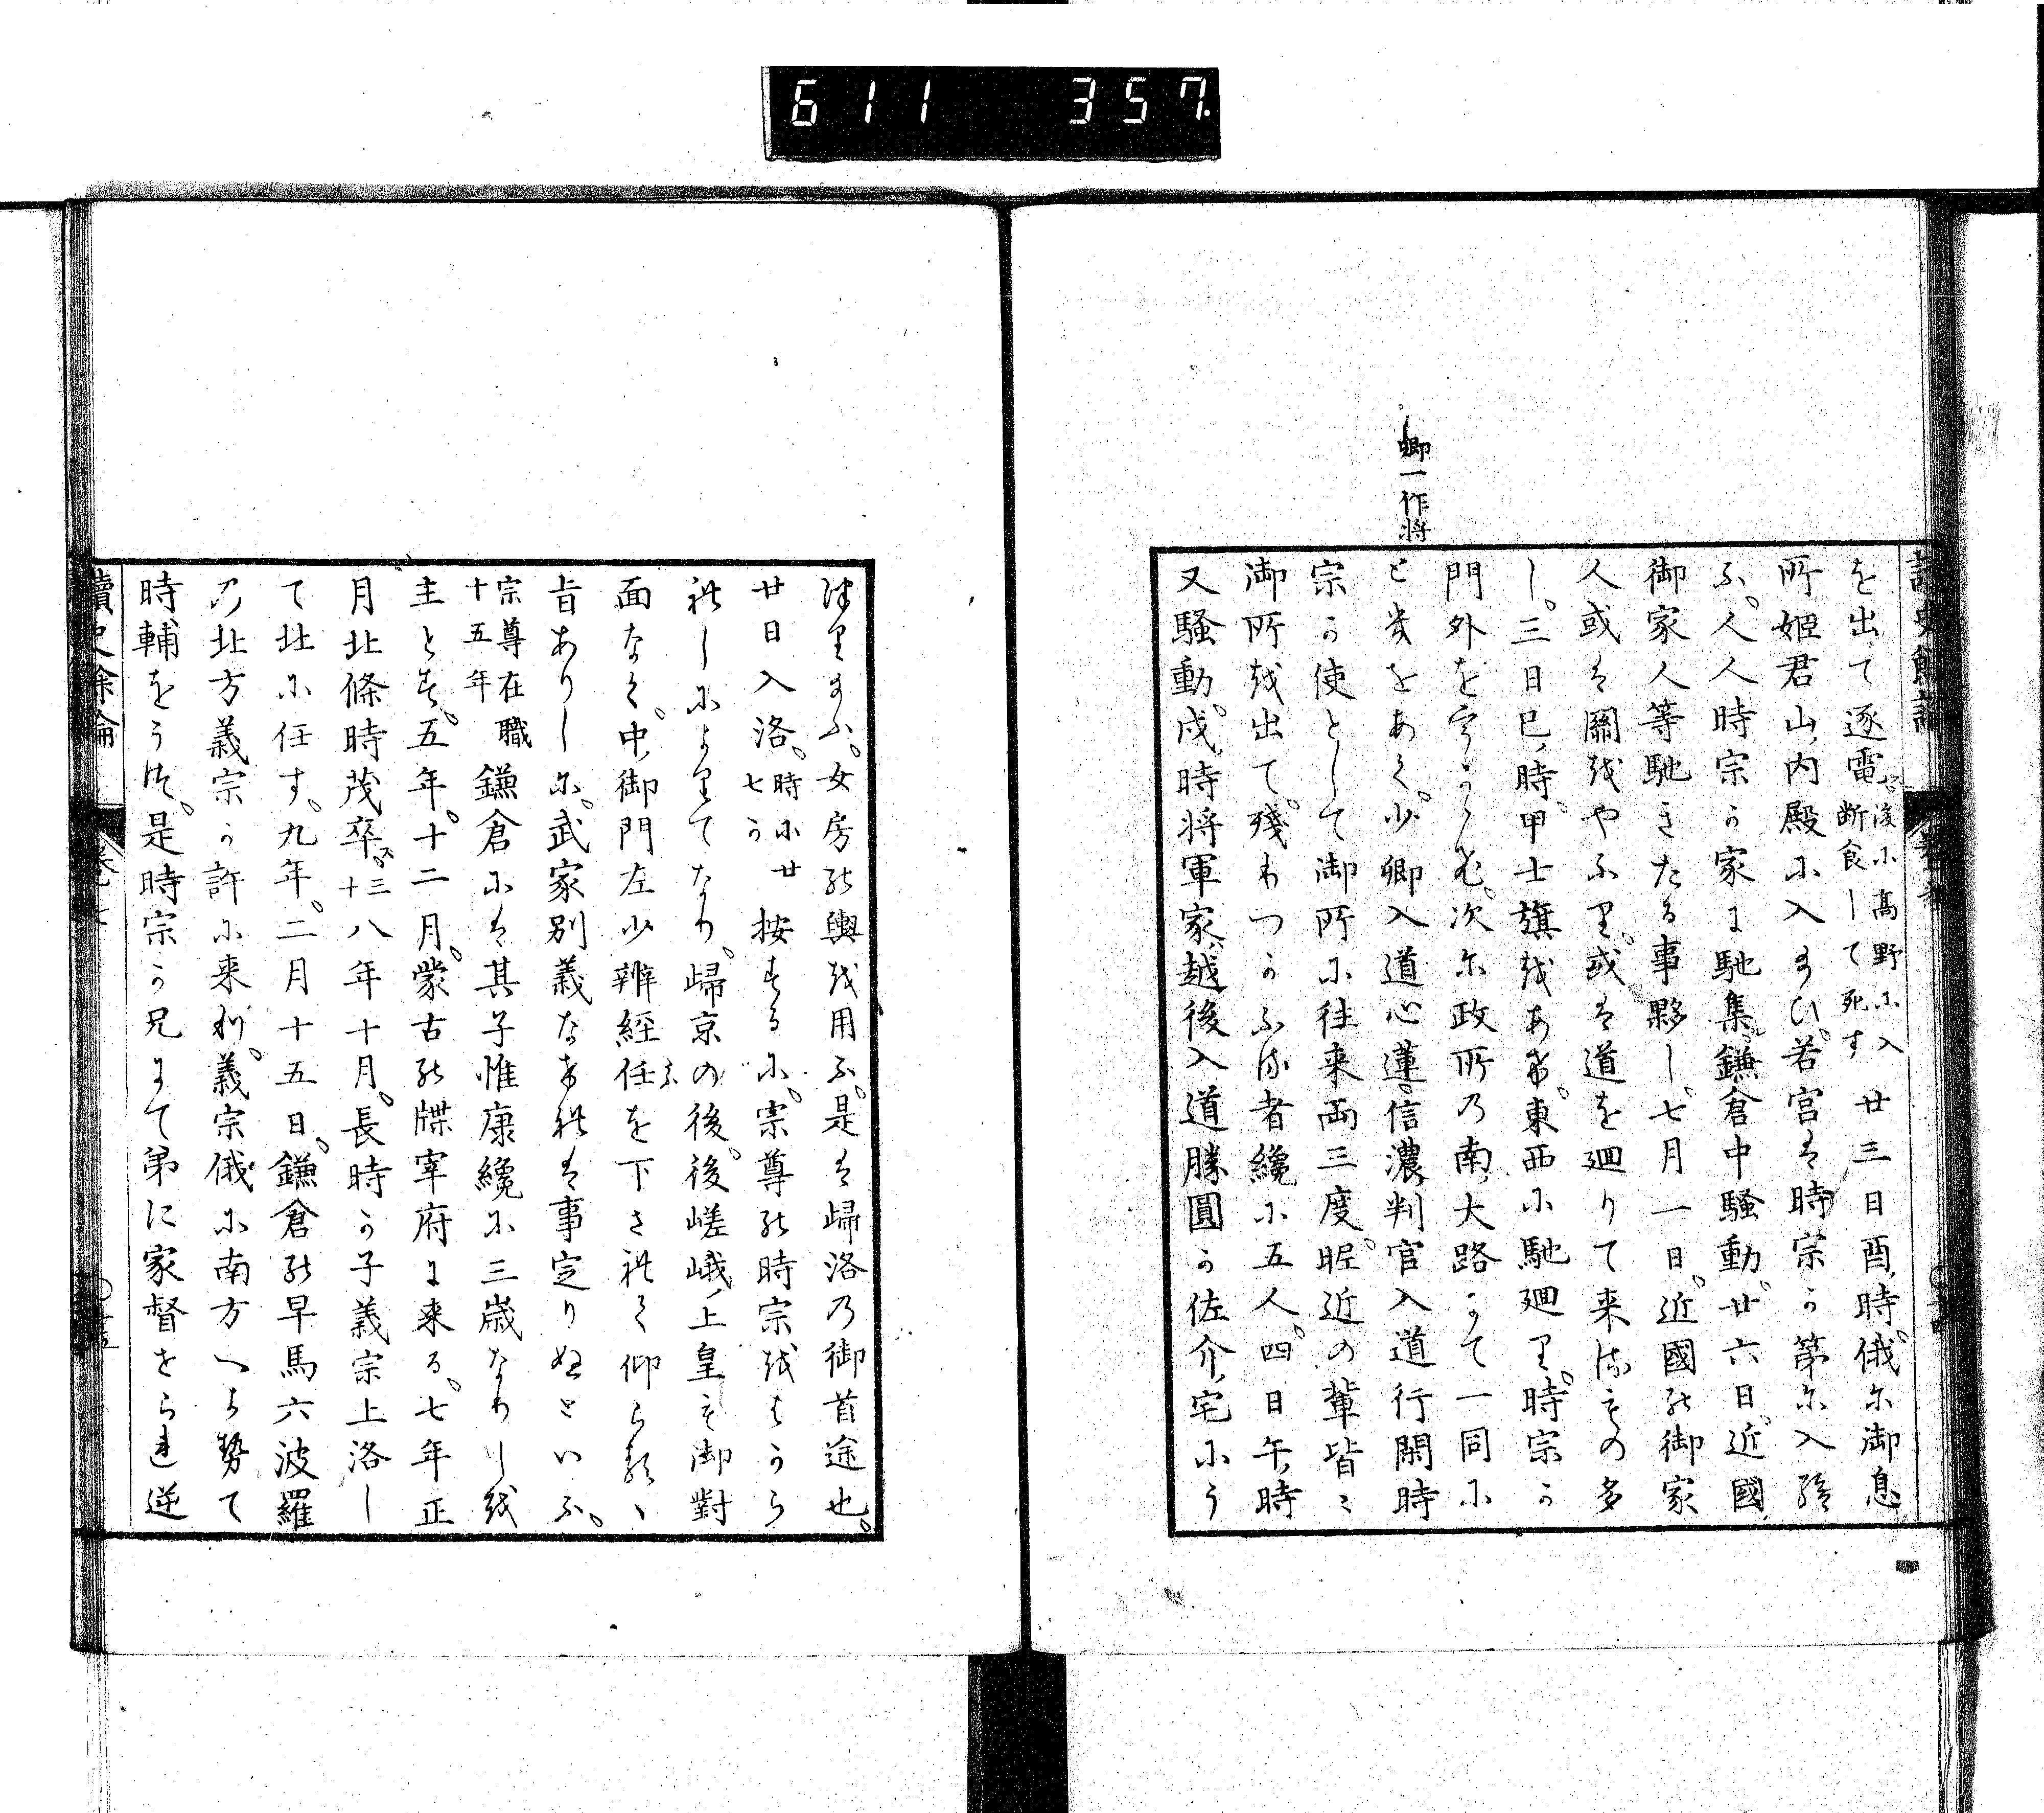 611 357
卿一作将
を出て逐電ス後小髙野小入断食して死す廿三日酉ノ時俄尓御息
所姫君山ノ内殿小入まひ若宮は時宗か第尓入給
ふ人人時宗か家に馳集ル鎌倉中騒動廿六日近國ノ
御家人等馳きたる事夥し七月一日近國の御家
人或は關をやふり或は道を廻りて来るもの多
し三日巳ノ時甲士旗をあけ東西小馳廻り時宗か
門外を
次尓政所の南ノ大路にて一同小
と
をあく少卿入道心蓮信濃ノ判官入道行閑時
宗か使として御所小往来両三度昵近の輩皆ミ
御所を出て殘りつかふる者纔小五人四日午ノ時
又騒動戌ノ時将軍家越後入道勝圓か佐介ノ宅小う
つりまふ女房の輿を用ふ是は歸洛の御首途也
廿日入洛時小廿七か按するに宗尊の時宗をはから
れしによりてなり歸京の後後嵯峨ノ上皇も御對
面なく中ノ御門左少辨經任を下され仰らるゝ
旨ありしに武家別義なければ事定りぬといふ
宗尊在職十五年鎌倉小は其子惟康纔小三歳なりしを
主とす五年十二月蒙古の牒宰府に来る七年正
月北條時茂卒ス三十八年十月長時か子義宗上洛し
て北小任す九年二月十五日鎌倉の早馬六波羅
の北方義宗か許小来り義宗俄小南方へよ勢て
時輔をうつ是時宗か兄にて弟に家督をられ逆
讀史餘論